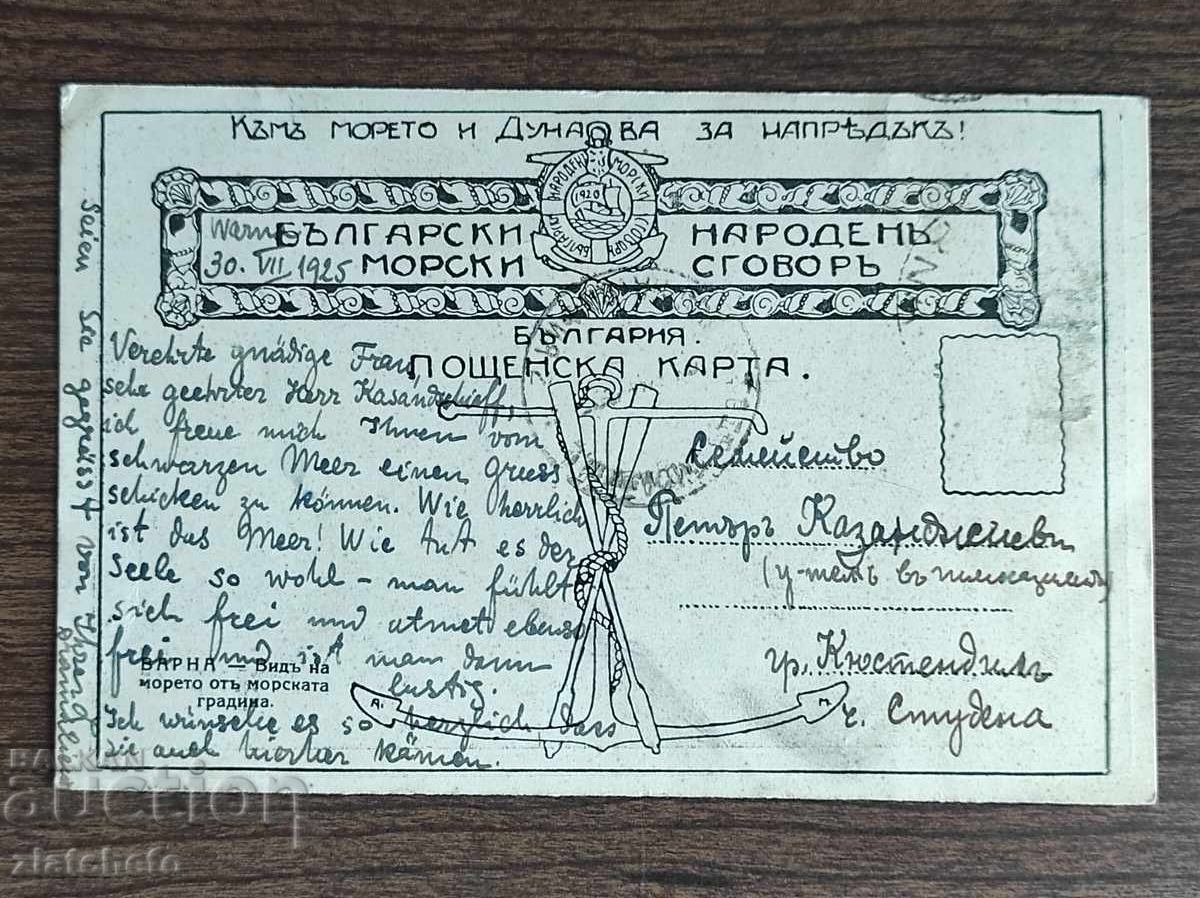 Къмъ морето и Дунава за напрѣдъкъ!
БЪЛГАРСКИ НАРОДЕНЪ
МОРСКИ СГОВОРЪ
БЪЛГАРСКИ НАРОДЕНЪ МОРСКИ СГОВОРЪ
1920
БЪЛГАРИЯ.
ПОЩЕНСКА КАРТА.
Warna
30. VII 1925
Verehrte gnädige Frau,
sehr geehrter Herr Kasandschieff,
ich freue mich Ihnen vom
schwarzen Meer einen Gruss
schicken zu können. Wie herrlich
ist das Meer! Wie tut es der
Seele so wohl – man fühlt
sich frei und atmet ebenso
frei und ist man dann
lustig.
Ich wünsche es so herzlich, dass
Sie auch hierher kämen.
Seien Sie gegrüsst von Ihrer
ВАРНА — Видъ на
морето отъ морската
градина.
А. П.
Семейство
Петъръ Казанджиеви
(у-телъ въ гимназията)
гр. Кюстендилъ
ч. Студена
BALKAN
auction
zlatchefo